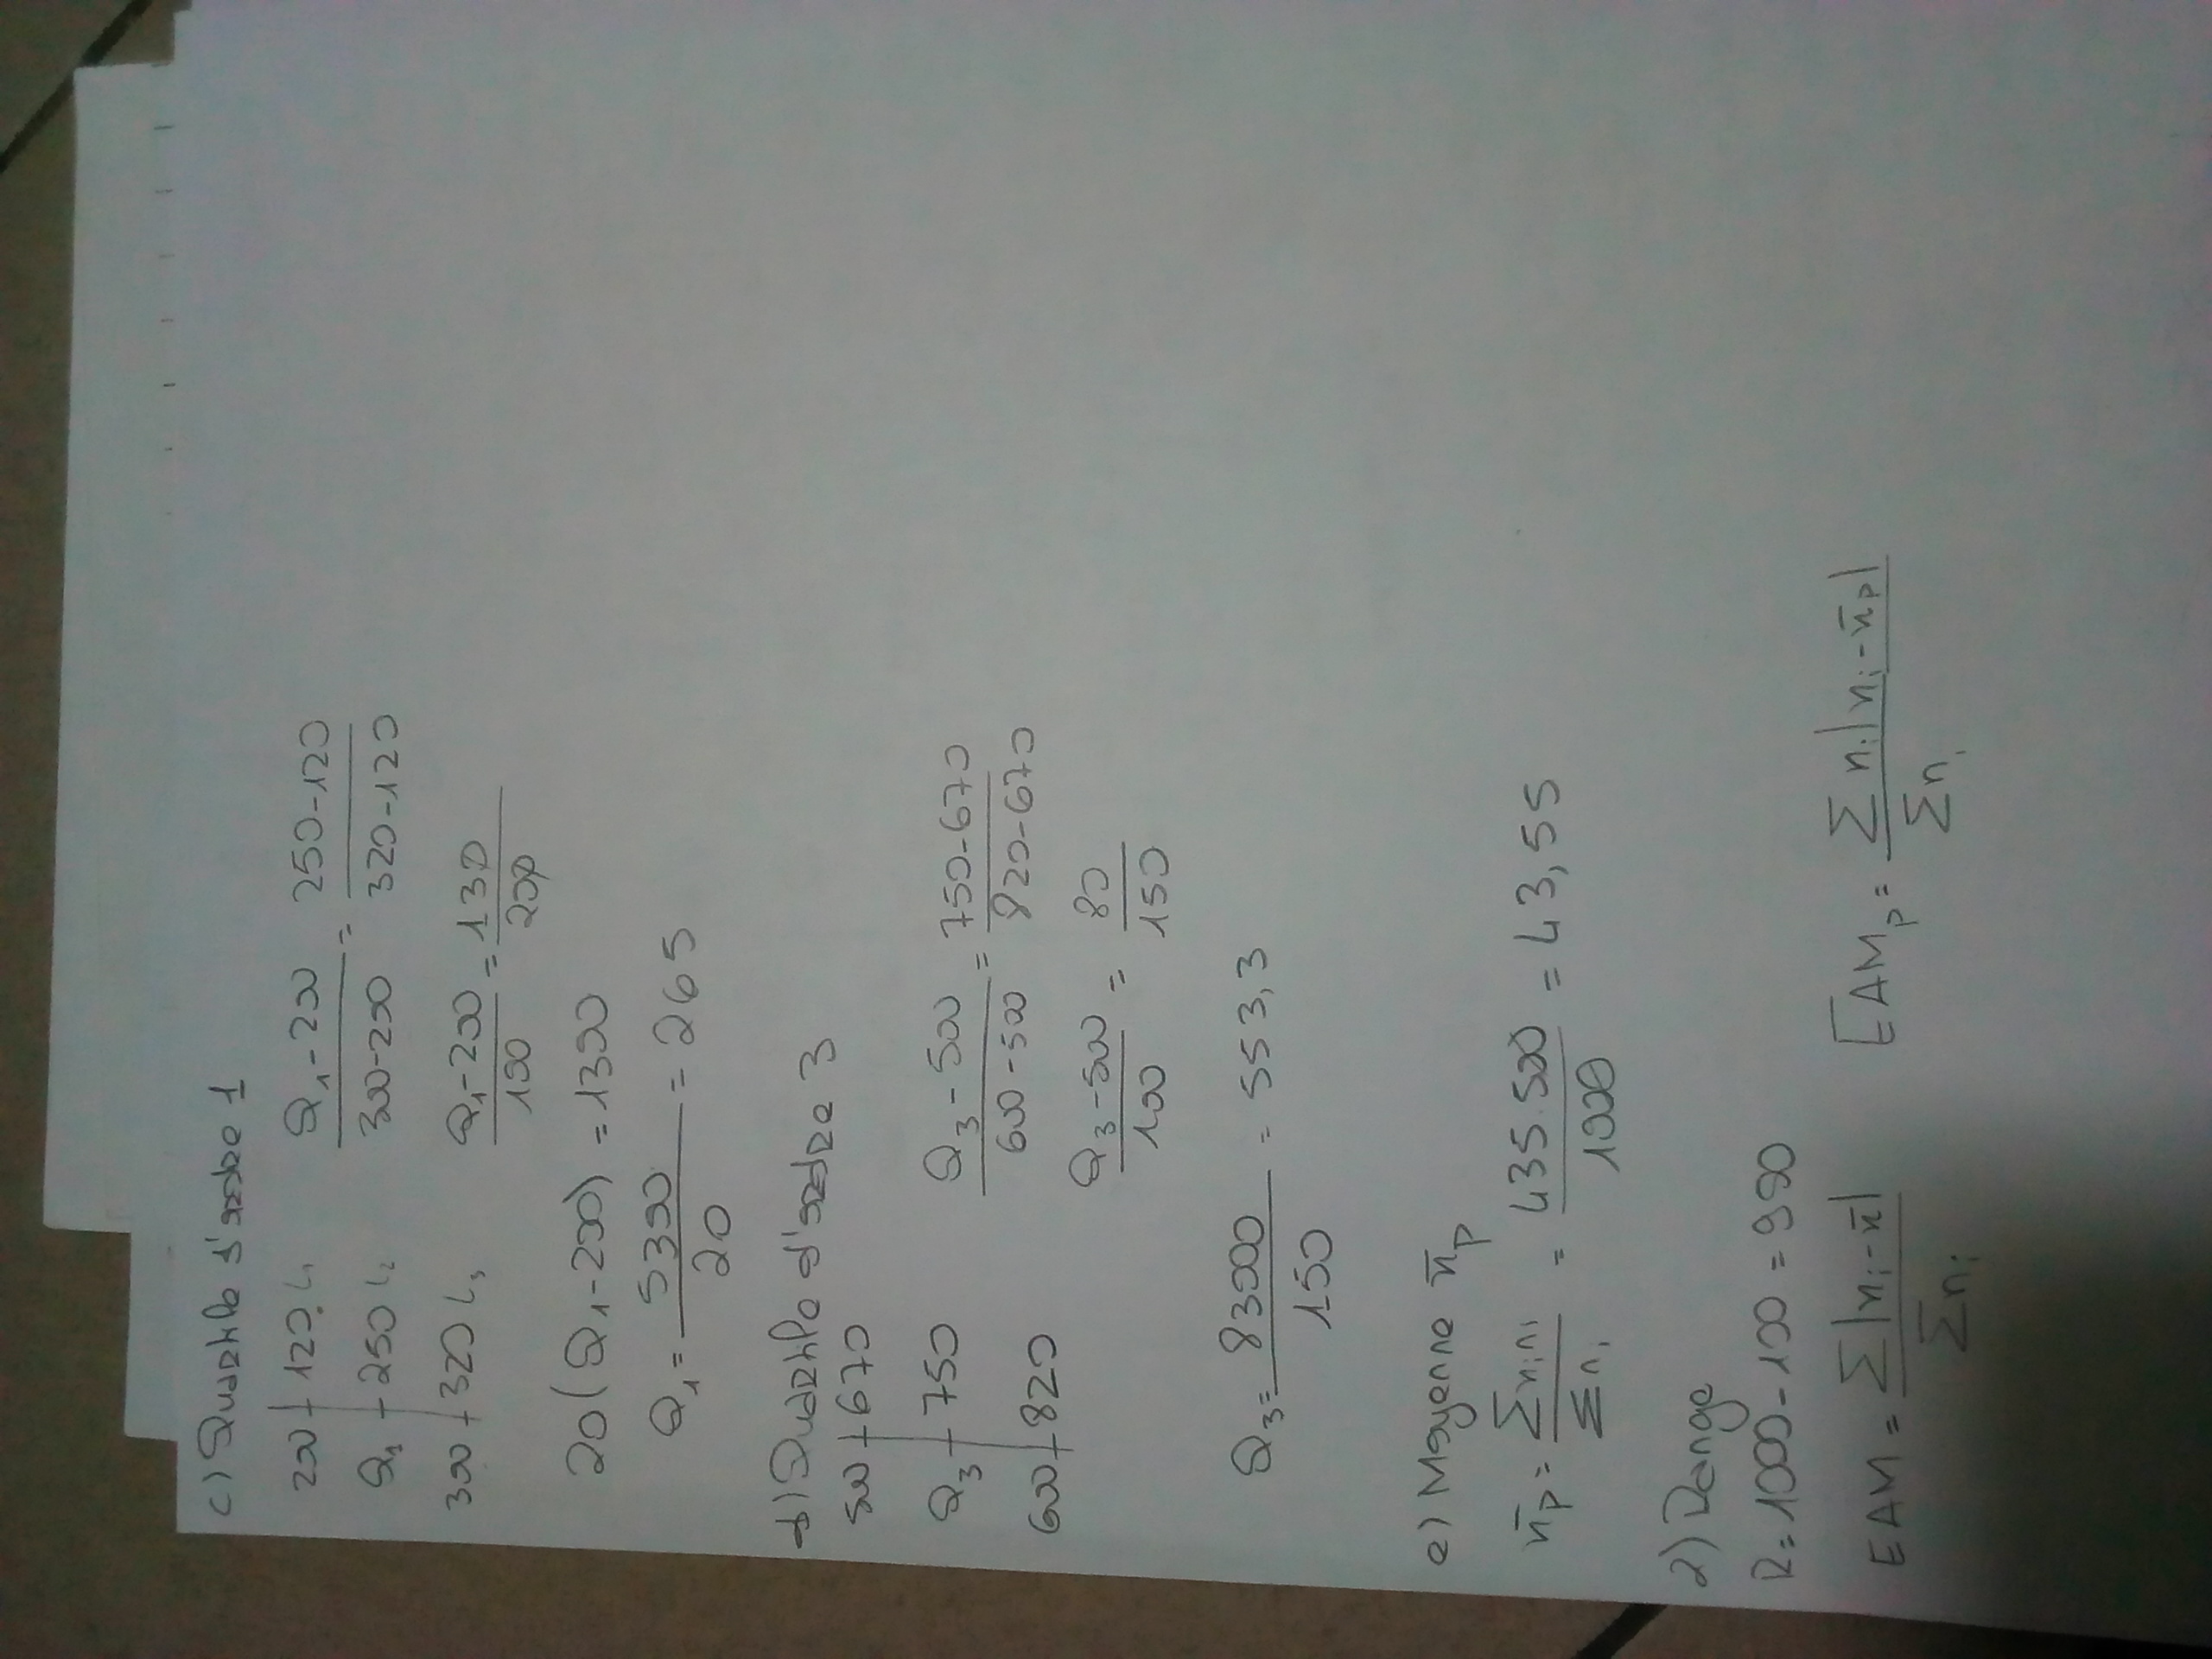 c) Quartile d'ordre 1
200 + 120 L1   Q1-200 / 300-200 = 250-120 / 320-120
Q1 + 250 L2
300 + 320 L3   Q1-200 / 100 = 130 / 200
20(Q1-200) = 1300
Q1 = 5300 / 20 = 265
d) Quartile d'ordre 3
500 + 670
Q3 + 750   Q3-500 / 600-500 = 750-670 / 820-670
600 + 820   Q3-500 / 100 = 80 / 150
Q3 = 83000 / 150 = 553,3
e) Moyenne x̄p
x̄p = Σ nixi / Σ ni = 435.500 / 1000 = 43,55
2) Range
R = 1000-100 = 900
EAM = Σ|xi-x̄| / Σni   EAMp = Σ ni|xi-x̄p| / Σni